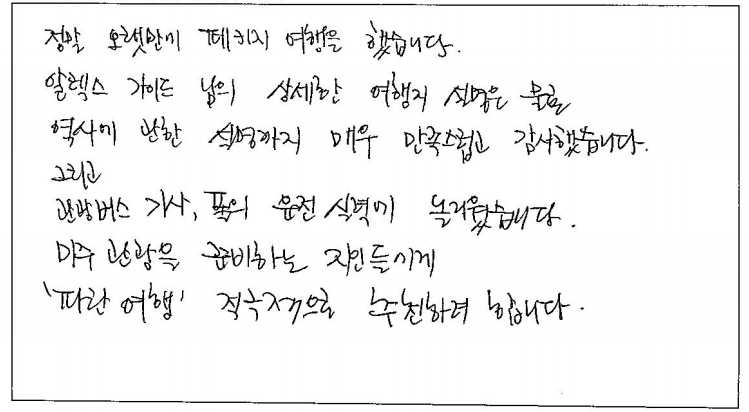 정말 오랫만에 페키지 여행을 했습니다.
알렉스 가이드 님의 상세한 여행지 설명은 물론
역사에 관한 설명까지 매우 만족스럽고 감사했습니다.
그리고
관광버스 기사, 폴의 운전 실력에 놀라웠습니다.
미주 관광을 준비하는 지인들에게
'파란 여행' 적극적으로 추천하려 합니다.